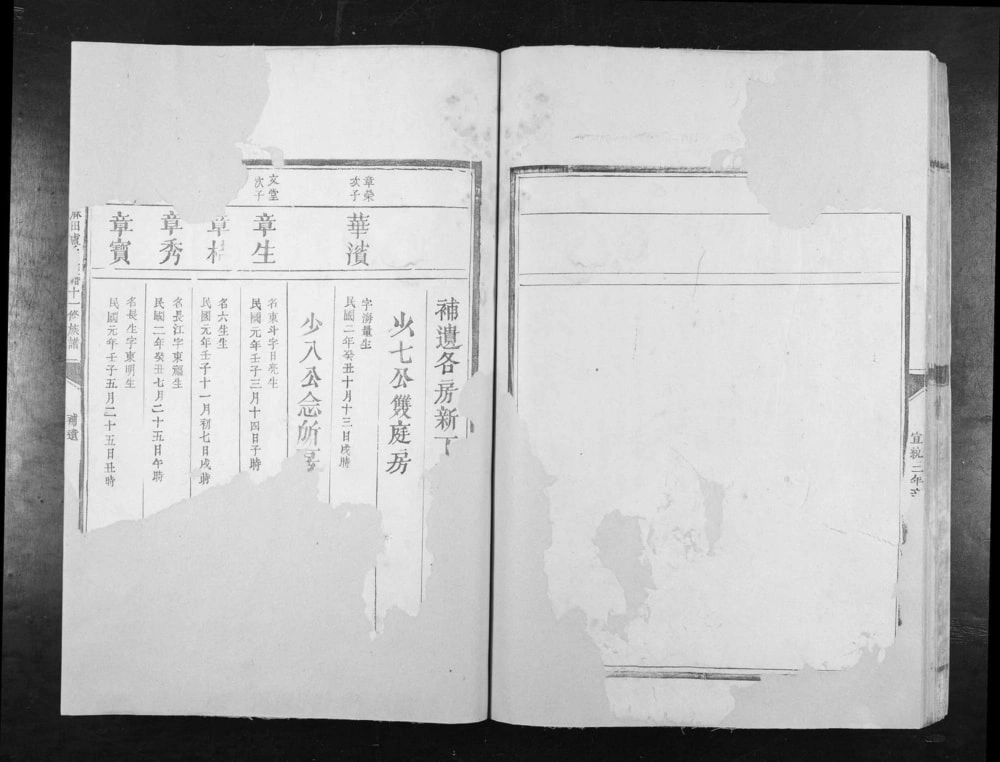 宣統二年
補遺各房新丁
少七公雙庭房
章榮次子
華濱
字海量生
民國二年癸丑十月十三日戌時
少八公念所房
文堂次子
章生
名東斗字日亮生
民國元年壬子三月十四日子時
章桂
名六生生
民國元年壬子十一月初七日戌時
章秀
名長江字東福生
民國二年癸丑七月二十五日午時
章寶
名長生字東明生
民國元年壬子五月二十五日丑時
麻田 十一修族譜
補遺